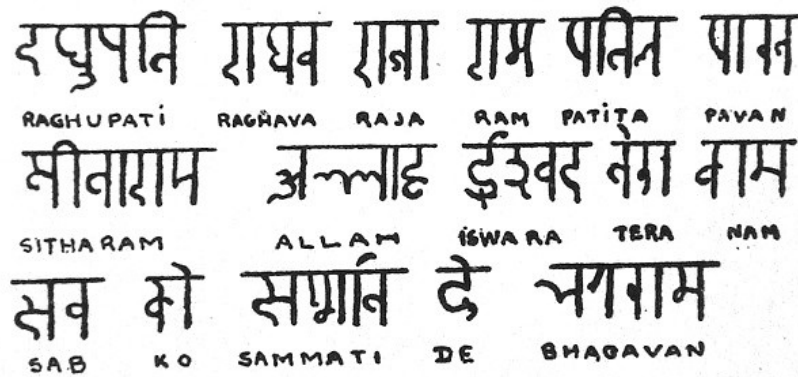 रघुपति राघव राजा राम पतित पावन
RAGHUPATI RAGHAVA RAJA RAM PATITA PAVAN
सीताराम अल्लाह ईश्वर तेरा नाम
SITHARAM ALLAH ISWARA TERA NAM
सब को सन्मति दे भगवान
SAB KO SAMMATI DE BHAGAVAN